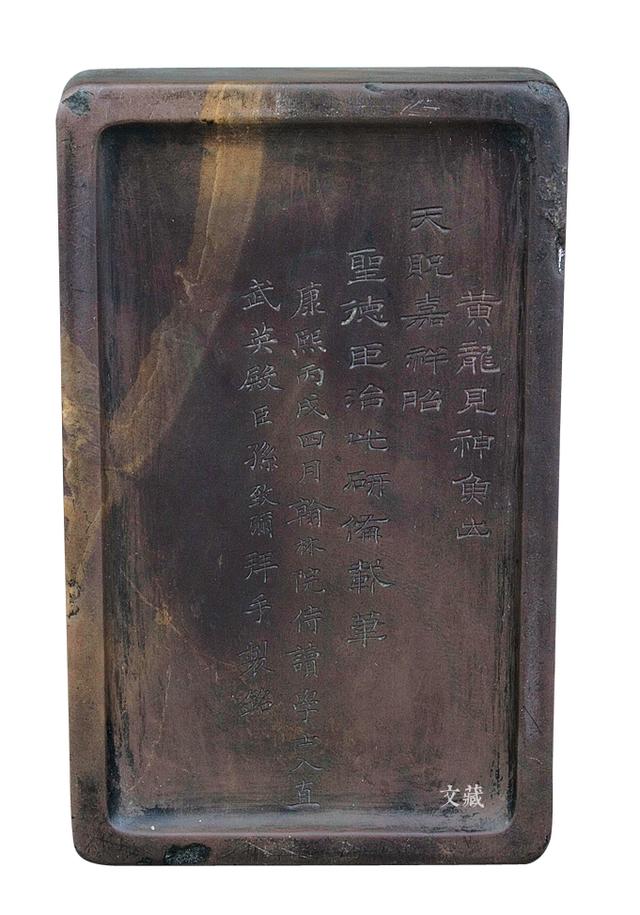 黄龍見神負出
天貺嘉祥昭
聖徳臣治此研備載筆
康熙丙戌四月翰林院侍讀學士入直
武英殿臣孫致彌拜手製銘
文藏